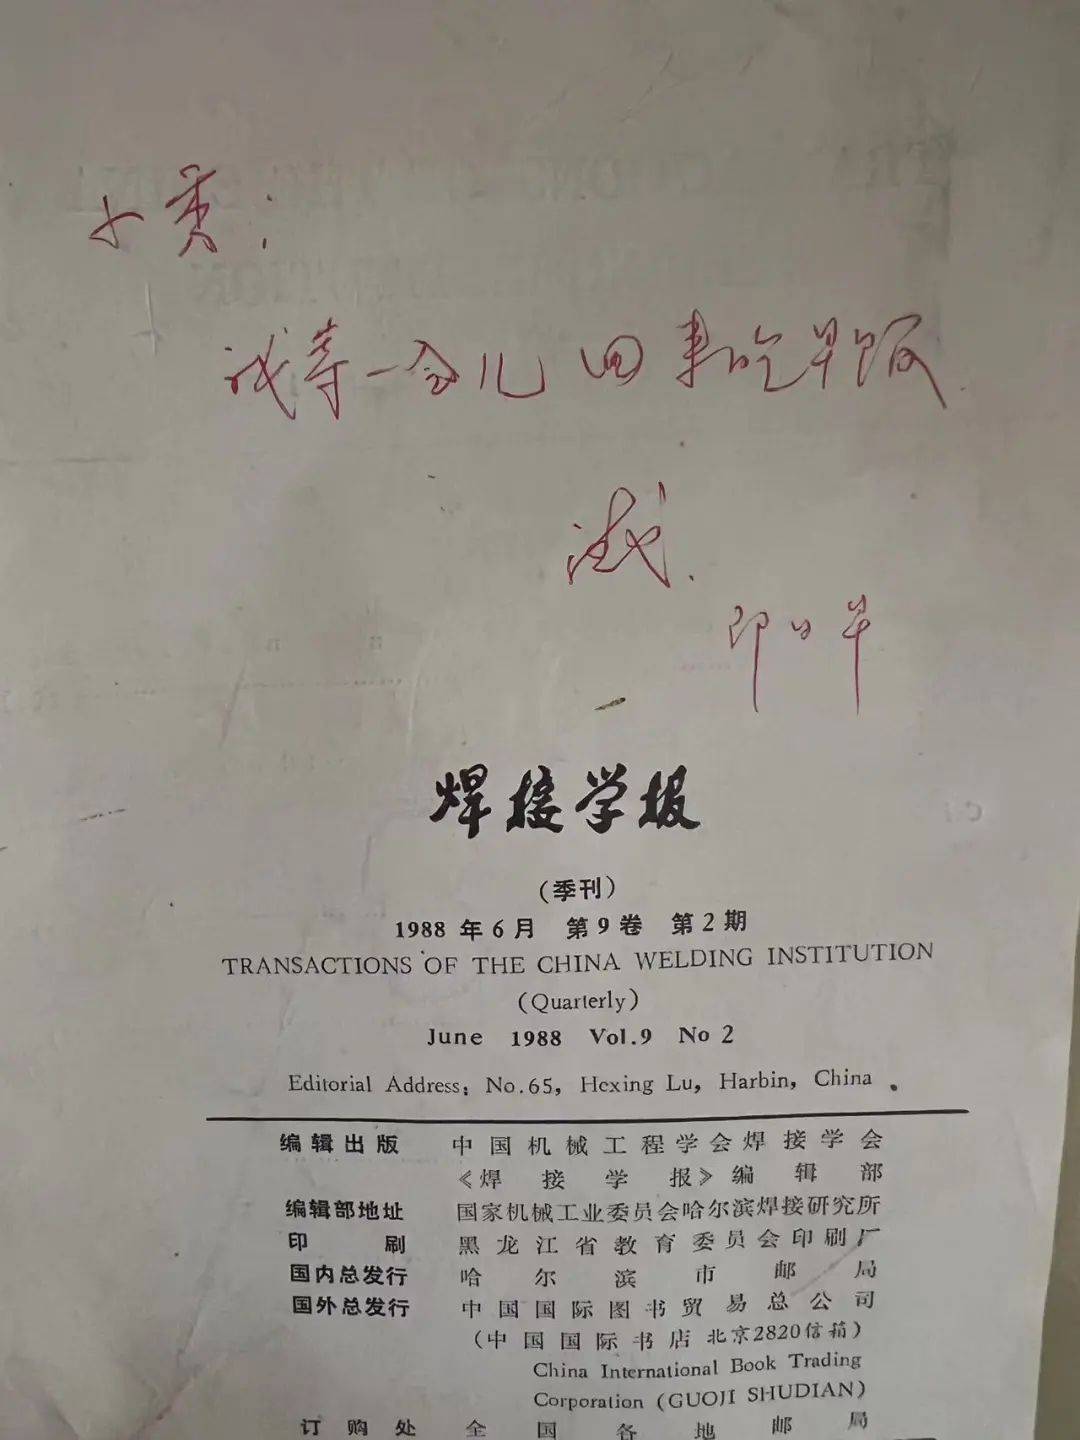 小黄：
我等一会儿回来吃早饭
即日早
焊接学报
（季刊）
1988 年 6 月 第 9 卷 第 2 期
TRANSACTIONS OF THE CHINA WELDING INSTITUTION
(Quarterly)
June 1988 Vol.9 No 2
Editorial Address: No.65, Hexing Lu, Harbin, China .
编辑出版 中国机械工程学会焊接学会
《焊接学报》编辑部
编辑部地址 国家机械工业委员会哈尔滨焊接研究所
印刷 黑龙江省教育委员会印刷厂
国内总发行 哈尔滨市邮局
国外总发行 中国国际图书贸易总公司
（中国国际书店 北京2820信箱）
China International Book Trading
Corporation (GUOJI SHUDIAN)
订购处 全国各地邮局